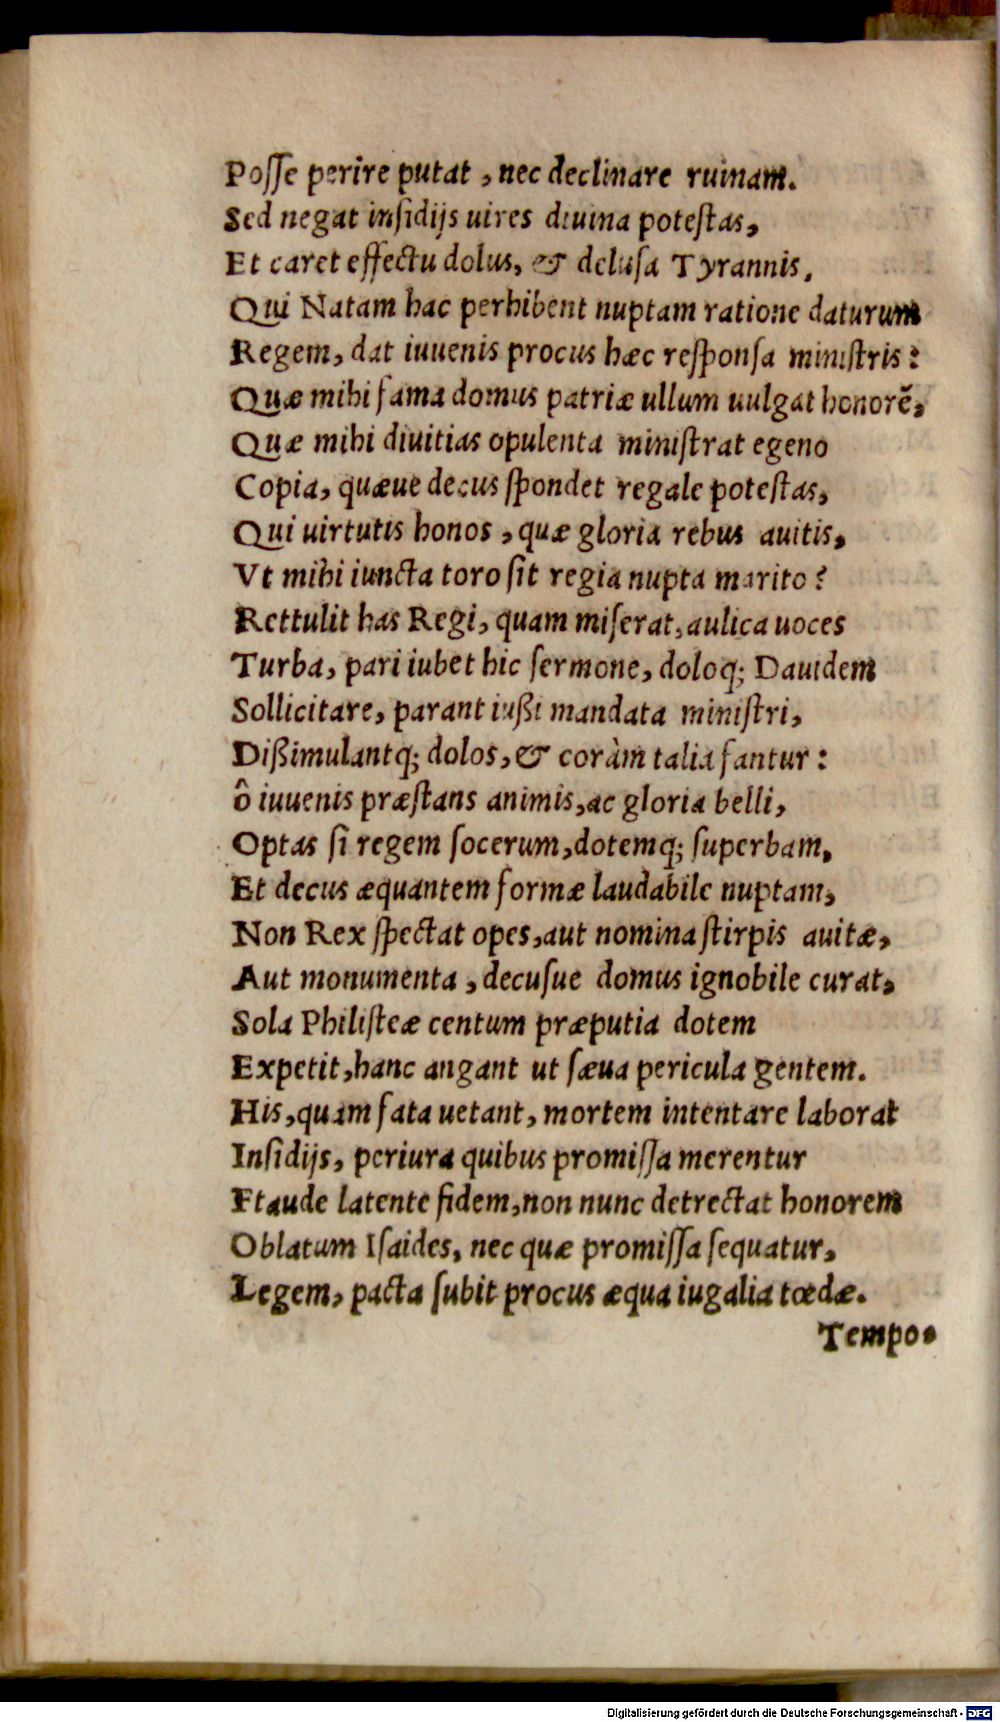 Posse perire putat, nec declinare ruinam.
Sed negat insidijs uires diuina potestas,
Et caret effectu dolus, & delusa Tyrannis.
Qui Natam hac perhibent nuptam ratione daturum
Regem, dat iuuenis procus hæc responsa ministris:
Quæ mihi fama domus patriæ ullum uulgat honorẽ,
Quæ mihi diuitias opulenta ministrat egeno
Copia, quæue decus spondet regale potestas,
Qui uirtutis honos, quæ gloria rebus auitis,
Vt mihi iuncta toro sit regia nupta marito?
Rettulit has Regi, quam miserat, aulica uoces
Turba, pari iubet hic sermone, doloq; Dauidem
Sollicitare, parant iußi mandata ministri,
Dißimulantq; dolos, & coràm talia fantur:
ô iuuenis præstans animis, ac gloria belli,
Optas si regem socerum, dotemq; superbam,
Et decus æquantem formæ laudabile nuptam,
Non Rex spectat opes, aut nomina stirpis auitæ,
Aut monumenta, decusue domus ignobile curat,
Sola Philisteæ centum præputia dotem
Expetit, hanc angant ut sæua pericula gentem.
His, quam fata uetant, mortem intentare laborat
Insidijs, periura quibus promissa merentur
Ftaude latente fidem, non nunc detrectat honorem
Oblatum Isaides, nec quæ promissa sequatur,
Legem, pacta subit procus æqua iugalia tœdæ.
Tempo-
Digitalisierung gefördert durch die Deutsche Forschungsgemeinschaft - DFG